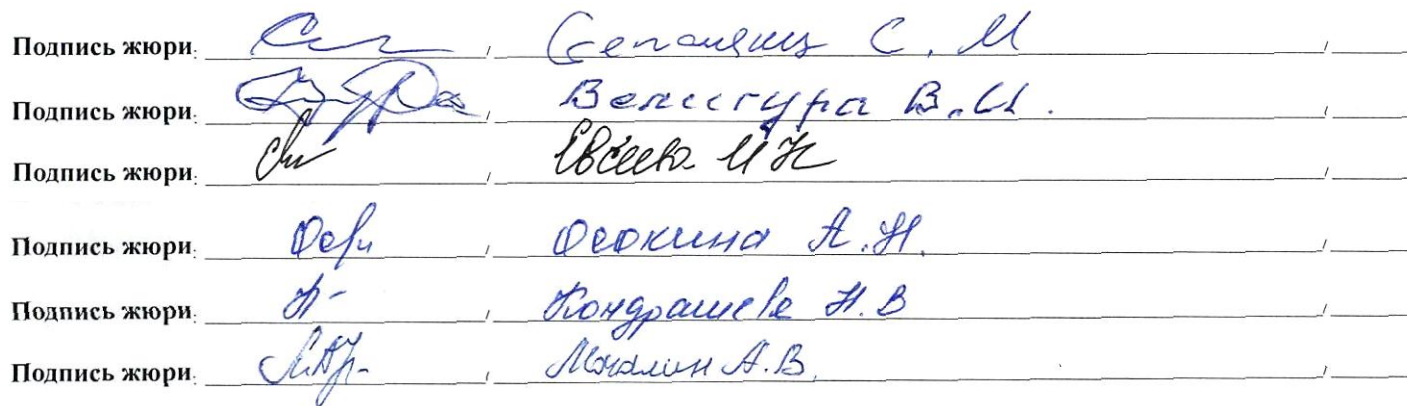 Подпись жюри: / С. М /
Подпись жюри: / Велигура В.И. /
Подпись жюри: / Евсеева И Н /
Подпись жюри: / Осокина А.Н. /
Подпись жюри: / Кондрашева Н.В /
Подпись жюри: / А.В. /